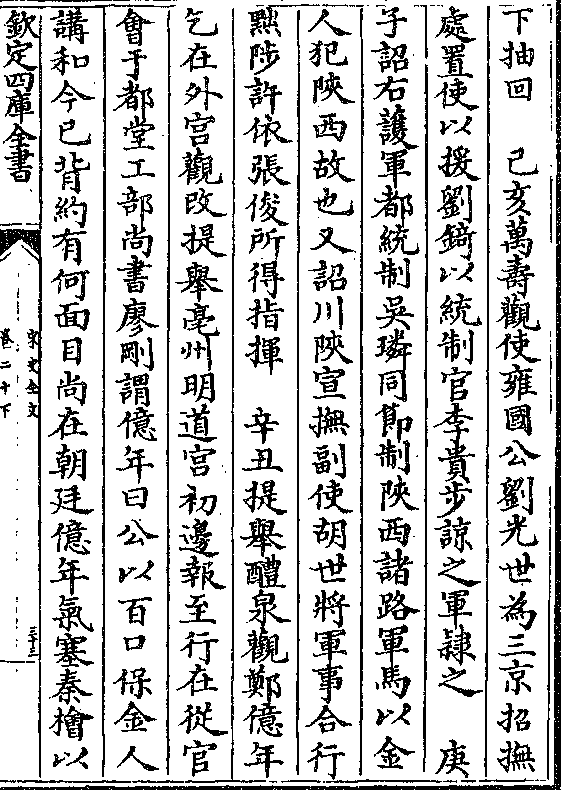 下抽回　己亥萬壽觀使雍國公劉光世為三京招撫
處置使以援劉錡以統制官李貴步諒之軍隸之　庚
子詔右護軍都統制吳璘同節制陝西諸路軍馬以金
人犯陝西故也又詔川陝宣撫副使胡世將軍事合行
黜陟許依張俊所得指揮　辛丑提舉醴泉觀鄭億年
乞在外宮觀改提舉亳州明道宮初邊報至行在從官
會于都堂工部尚書廖剛謂億年曰公以百口保金人
講和今已背約有何面目尚在朝廷億年氣塞秦檜以
欽定四庫全書
宋史全文
卷二十下
三十三